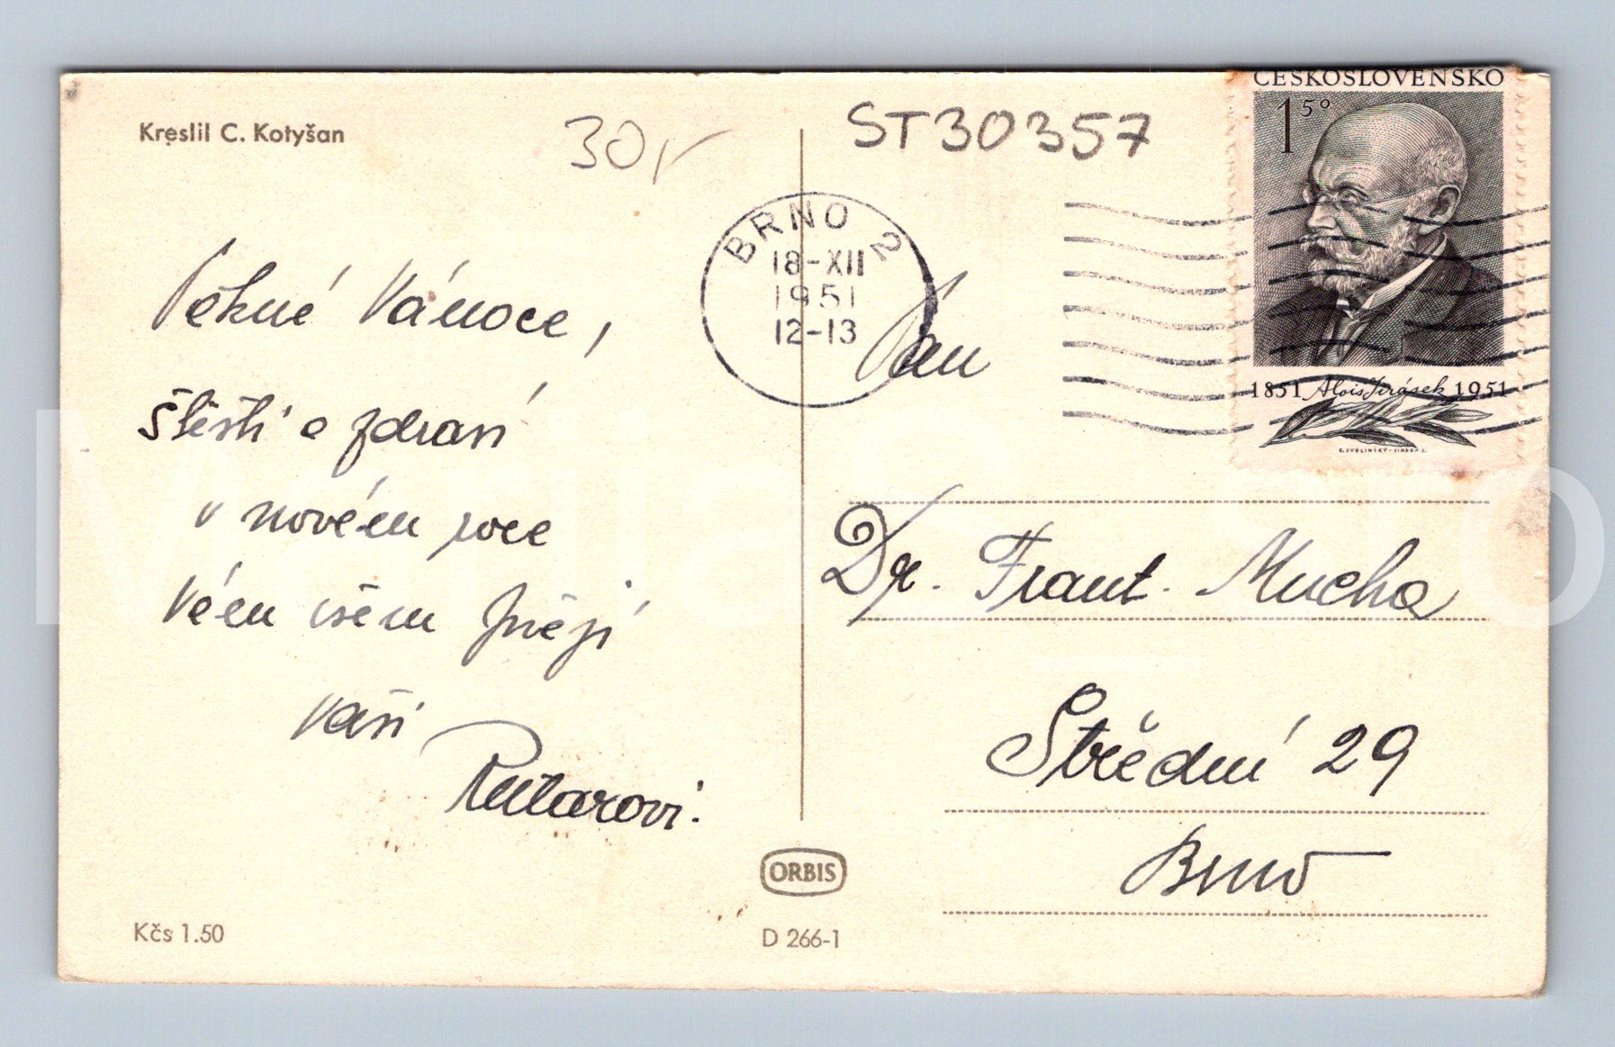 Kreslil C. Kotyšan
30,-
ST30357
ČESKOSLOVENSKO
1 50
BRNO 2
18-XII
1951
12-13
1851 Alois Jirásek 1951
Pěkné Vánoce,
štěstí a zdraví
v novém roce
Vám všem přejí
Vaši
Rutarovi.
Pan
Dr. Frant. Mucha
Střední 29
Brno
ORBIS
Kčs 1.50
D 266-1